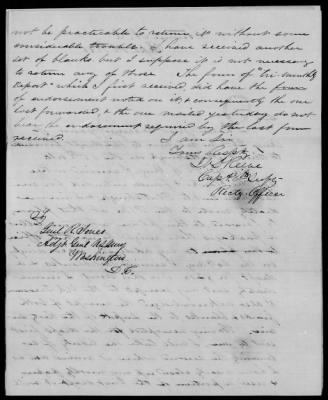 not be practicable to return it without some
considerable trouble. I have received another
set of blanks but I suppose it is not necessary
to return any of those. The form of "tri-monthly
report" which I first received, did have the form
of endorsement noted on it, & consequently the one
last forwarded, & the one mailed yesterday do not
bear the endorsement required by the last form
received.
I am Sir
Your
Capt
Rectg Officer
To
Genl R. Jones
Adjt Genl U.S. Army
Washington
D.C.